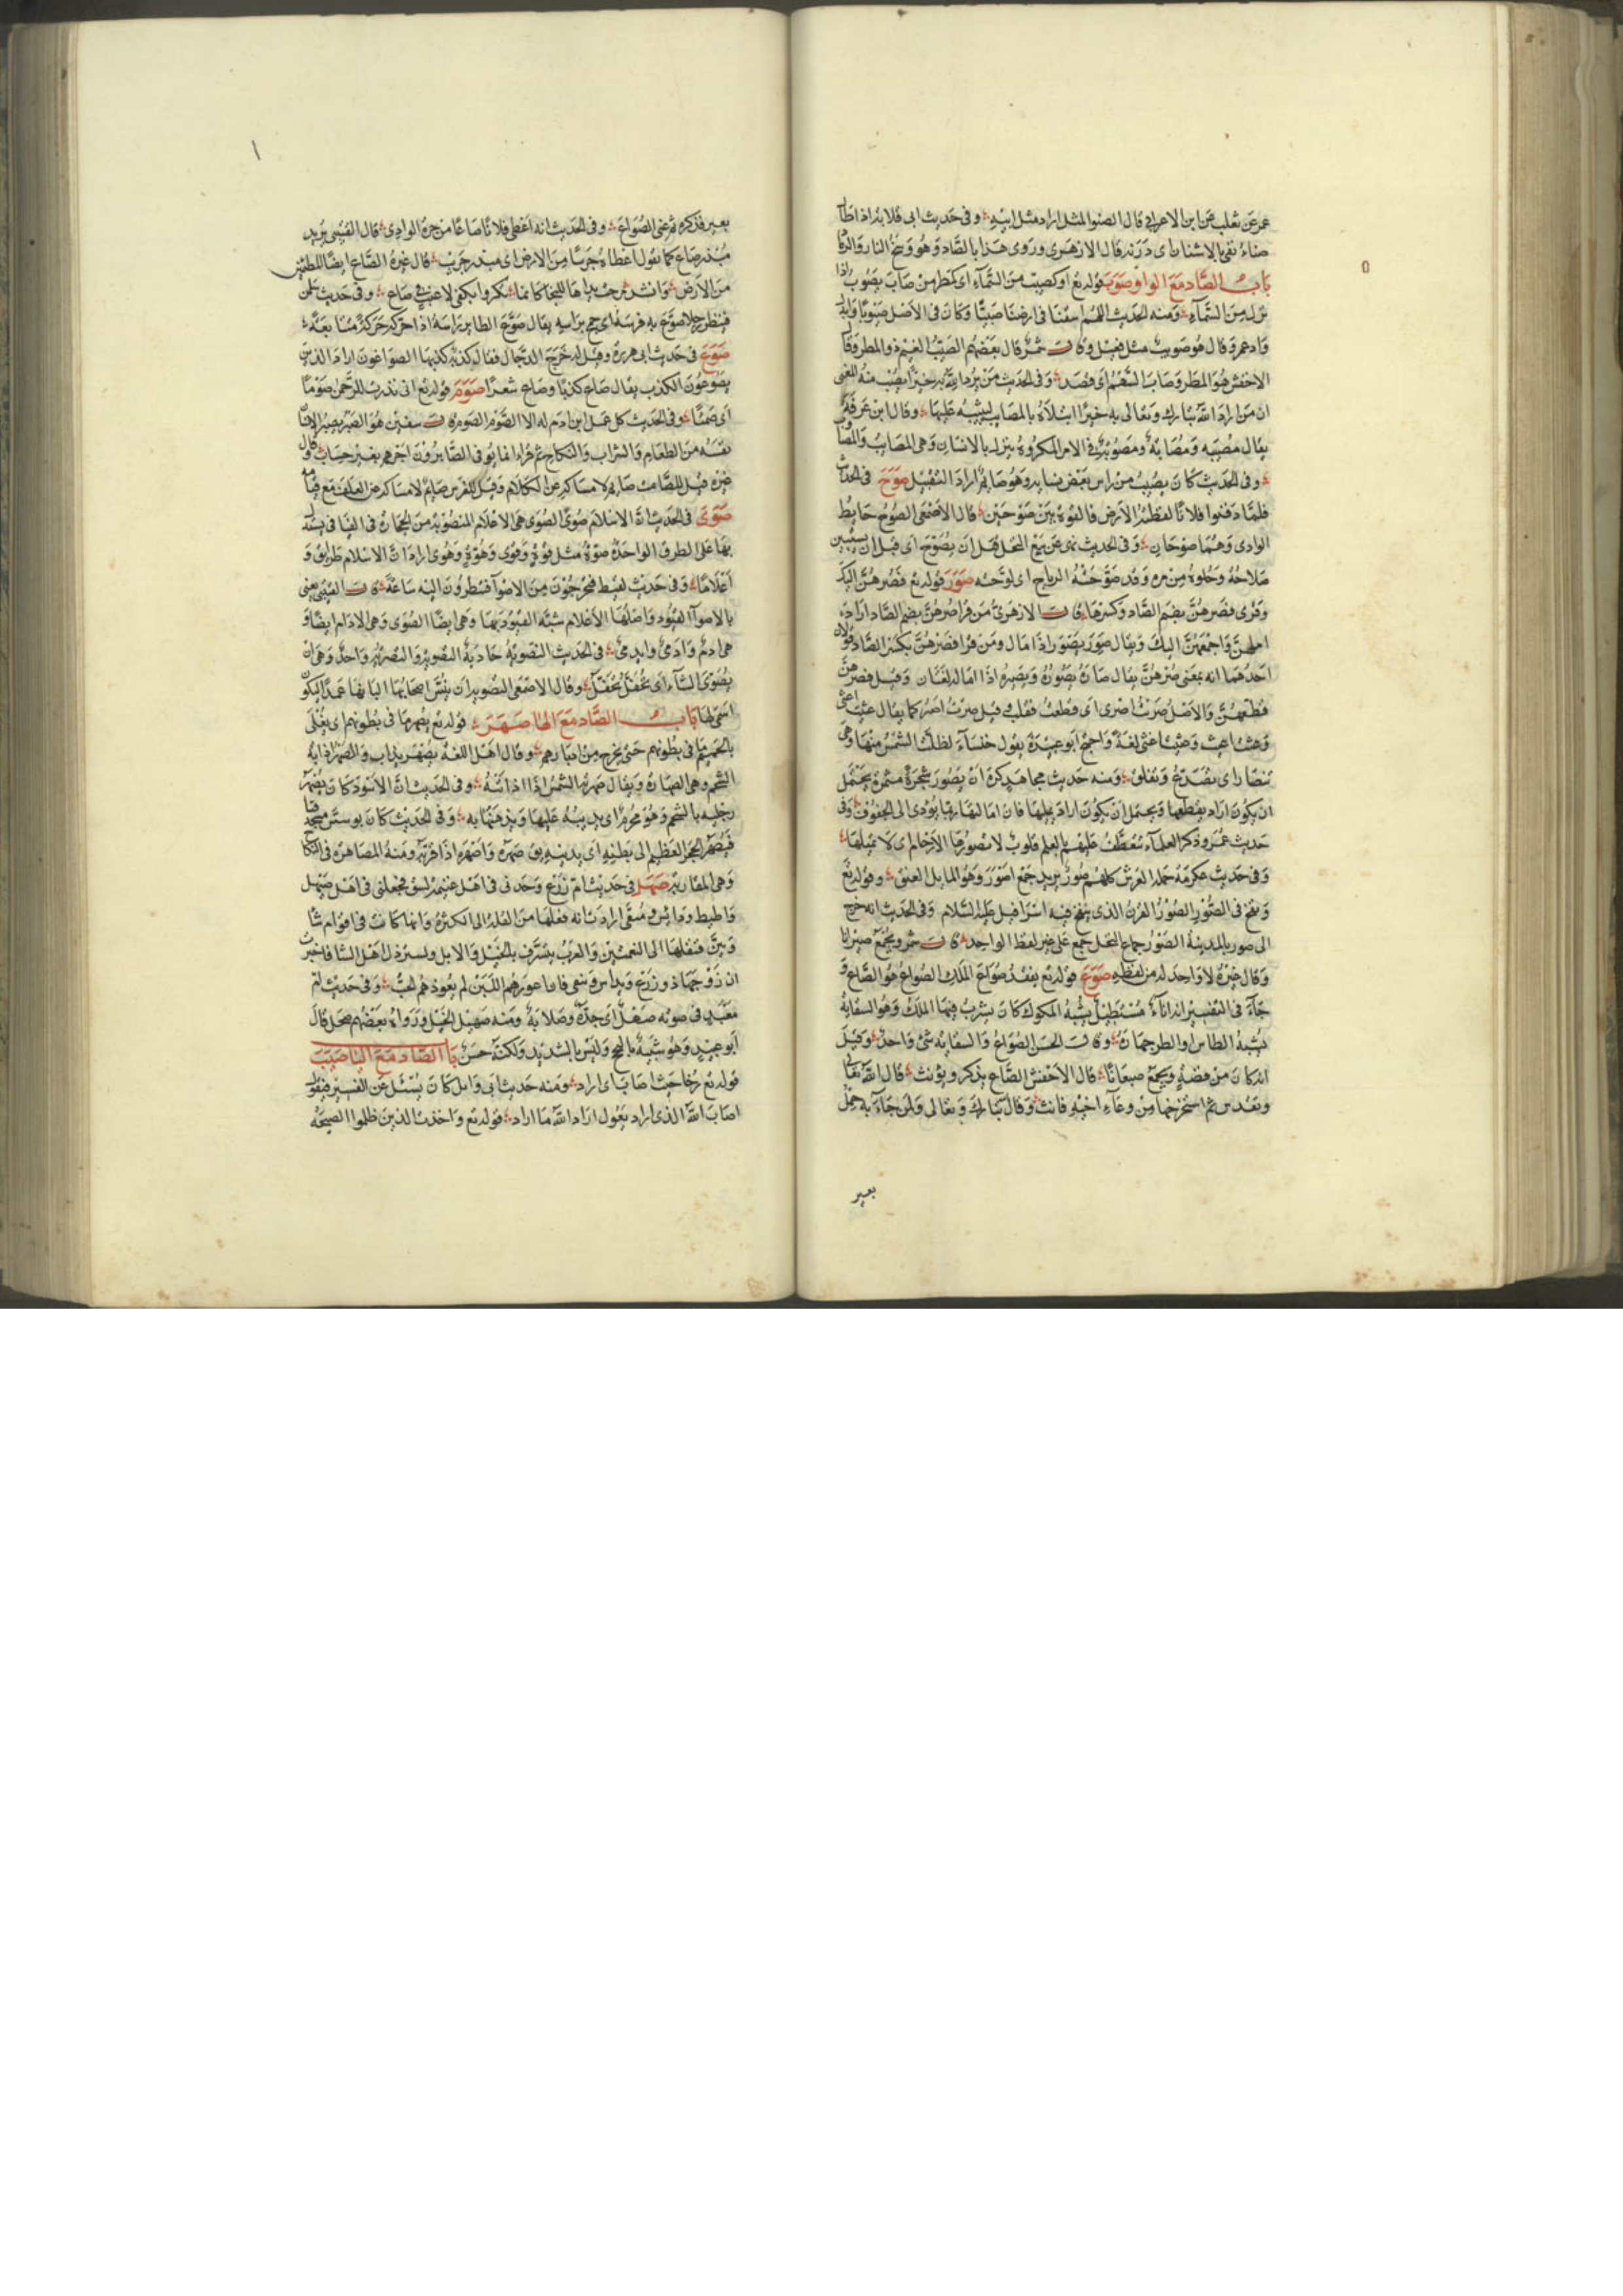 عمر عن ثعلب عن ابن الاعرابي قال الصنو المثل اراد مثل ابيه وفي حديث ابي قلابة اذا طال
صناء نقي بالاشنان اى درنه قال الازهري وروى هذا بالصاد وهو وسخ النار والرماد
باب الصاد مع الواو صوب قوله تع او كصيب من السماء اى كمطر من صاب يصوب اذا
نزل من السماء ومنه الحديث اللهم اسقنا في ارضنا صيبا وكان في الاصل صيوبا
وقال هو صويب مثل فيعل وقال شمر قال بعضهم الصيب الغيم ذو المطر وقال
الاخفش هو المطر وصاب السهم اى قصد وفي الحديث من يرد الله به خيرا يصب منه المعنى
ان من اراد الله تبارك وتعالى به خيرا ابتلاه بالمصايب ليثيبه عليها وقال ابن عرفة
يقال مصيبة ومصابة ومصوبة وهي الامر المكروه ينزل بالانسان وهي المصايب والمصاوب
وفي الحديث كان يصيب من راس بعض نسايه وهو صايم اراد التقبيل صوح في الحديث
فلما دفنوا فلانا لفظته الارض فالقوه بين صوحين قال الاصمعي الصوح حايط
الوادى وهما صوحان وفي الحديث نهى عن بيع النخل قبل ان يصوح اى قبل ان يستبين
صلاحه وحلوه من مره وقد صوحته الرياح اى لوحته صور قوله تع فصرهن اليك
وقرى فصرهن بضم الصاد وكسرها قال الازهري من قرا صرهن بضم الصاد اراد
املهن واجمعهن اليك ويقال صور يصور اذا مال ومن قرا فصرهن بكسر الصاد قولان
احدهما انه بمعنى صرهن يقال صاره يصوره ويصيره اذا اماله لغتان وقيل فصرهن
قطعهن والاصل صريت اصرى اى قطعت فقلب وقيل صرت اصير كما يقال عثيت اعثى
وعثت اعيث وعيثا عثى لغة واحتج ابو عبيدة بقول خنساء لظلت الشمس منها وهى
تنصار اى تصدع وتفلق ومنه حديث مجاهد كره ان يصور شجرة مثمرة يحتمل
ان يكون اراد يقطعها ويحتمل ان يكون اراد يميلها فان امالتها ربما يؤدى الى الجفوف وفي
حديث عمر وذكر العلماء تتعطف عليهم بالعلم قلوب لا تصورها الارحام اى لا تميلها
وفي حديث عكرمة حملة العرش كلهم صور يريد جمع اصور وهو المايل العنق وقوله تع
ونفخ في الصور الصور القرن الذى ينفخ فيه اسرافيل عليه السلام وفي الحديث انه خرج
الى صور بالمدينة الصور جماع النخل جمع على غير لفظ الواحد قال شمر ويجمع صيرانا
وقال غيره لا واحد له من لفظه صوع قوله تع نفقد صواع الملك الصواع هو الصاع و
جاء في التفسير انه اناء مستطيل يشبه المكوك كان يشرب فيها الملك وهو السقاية
يشبه الطاس او الطرجهارة وقال الحسن الصواع والسقاية شئ واحد وقيل
انه كان من فضة ويجمع صيعانا قال الاخفش الصاع يذكر ويؤنث قال الله تعالى
وتقدس ثم استخرجها من وعاء اخيه فانث وقال تبارك وتعالى ولمن جاء به حمل
بعير
بعير فذكره ثم عنى الصواع وفي الحديث انه اعطى فلانا صاعا من حرة الوادى قال القتيبي يريد
مبذر صاع كما يقول اعطاه جريبا من الارض اى مبذر جريب قال غيره الصاع ايضا المطمئن
من الارض وانشد مرحت يداها للنجا كانما تكروا بكفى لاعب في صاع وفي حديث سلمن
فينظر رجلا صوع به فرسه اى جمح براسه يقال صوع الطاير راسه اذا حركه حركة متتابعة
صوغ في حديث ابي هريرة وقيل له خرج الدجال فقال كذبة كذبها الصواغون اراد الذين
يصوغون الكذب يقال صاغ كذبا وصاغ شعرا صوم قوله تع اني نذرت للرحمن صوما
اى صمتا وفي الحديث كل عمل ابن ادم له الا الصوم الصوم قال سفين هو الصبر يصبر الانسان
نفسه من الطعام والشراب والنكاح ثم قراء انما يوفى الصابرون اجرهم بغير حساب وقال
غيره قيل للصامت صايم لامساكه عن الكلام وقيل للفرس صايم لامساكه عن العلف مع قيامه
صوى في الحديث ان الاسلام صوى الصوى هي الاعلام المنصوبة من الحجارة في الفيافي يستدل
بها على الطرق الواحدة صوة مثل قوة وقوى وهوة وهوى اراد ان للاسلام طرايق و
اعلاما وفي حديث لقيط فيخرجون من الاصواء فينظرون اليه ساعة قال القتيبي يعنى
بالاصواء القبور واصلها الاعلام شبه القبور بها وهي ايضا الصوى وهي الارام ايضا و
هي ارم وارمى وايرمى في الحديث التصوية خلابة التصوية والتصرية واحد وهي ان
يصوى الشاء اى تحفل وقال الاصمعي التصوية ان ييبس اصحابها البانها عمدا ليكون
اسمن لها باب الصاد مع الهاء صهر قوله تع يصهر به ما في بطونهم اى يغلى
بالحميم ما في بطونهم حتى يخرج من ادبارهم وقال اهل اللغة يصهر يذاب والصهر اذابة
الشحم وهي الصهارة ويقال صهرته الشمس اذا اذابته وفي الحديث ان الاسود كان يصهر
رجليه بالشحم وهو محرم اى يذيبه عليها ويدهنها به وفي الحديث كان يوسس مسجد قبا
فيصهر الحجر العظيم الى بطنه اى يدنيه يق صهره واصهره اذا قربه ومنه المصاهرة في النكاح
وهي المقاربة صهل في حديث ام زرع وجدنى في اهل غنيمة بشق فجعلنى في اهل صهيل
واطيط ودايس ومنق ارادت انه نقلها من القلة الى الكثرة وانما كانت في اقوام شا
فنقلها الى النعمتين والعرب يتشرف بالخيل والابل ويسترذل اهل الشا
ابو عبيد وهو شبيه بالبحح وليس بالشديد ولكنه حسن باب الصاد مع الياء صيب
قوله تع رخاء حيث اصاب اى اراد ومنه حديث ابي وايل كان يسئل عن التفسير فيقول
اصاب الله الذى اراد يقول اراد الله ما اراد قوله تع واخذت الذين ظلموا الصيحة